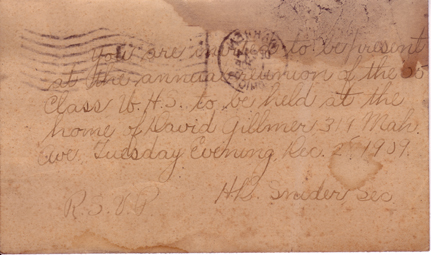 You are invited to be present
at the annual reunion of the '06
Class W.H.S. to be held at the
home of David Gillmer 311 Mah.
ave. Tuesday Evening, Dec. 28, 1909.
H.D. Snider Sec
R.S.V.P.